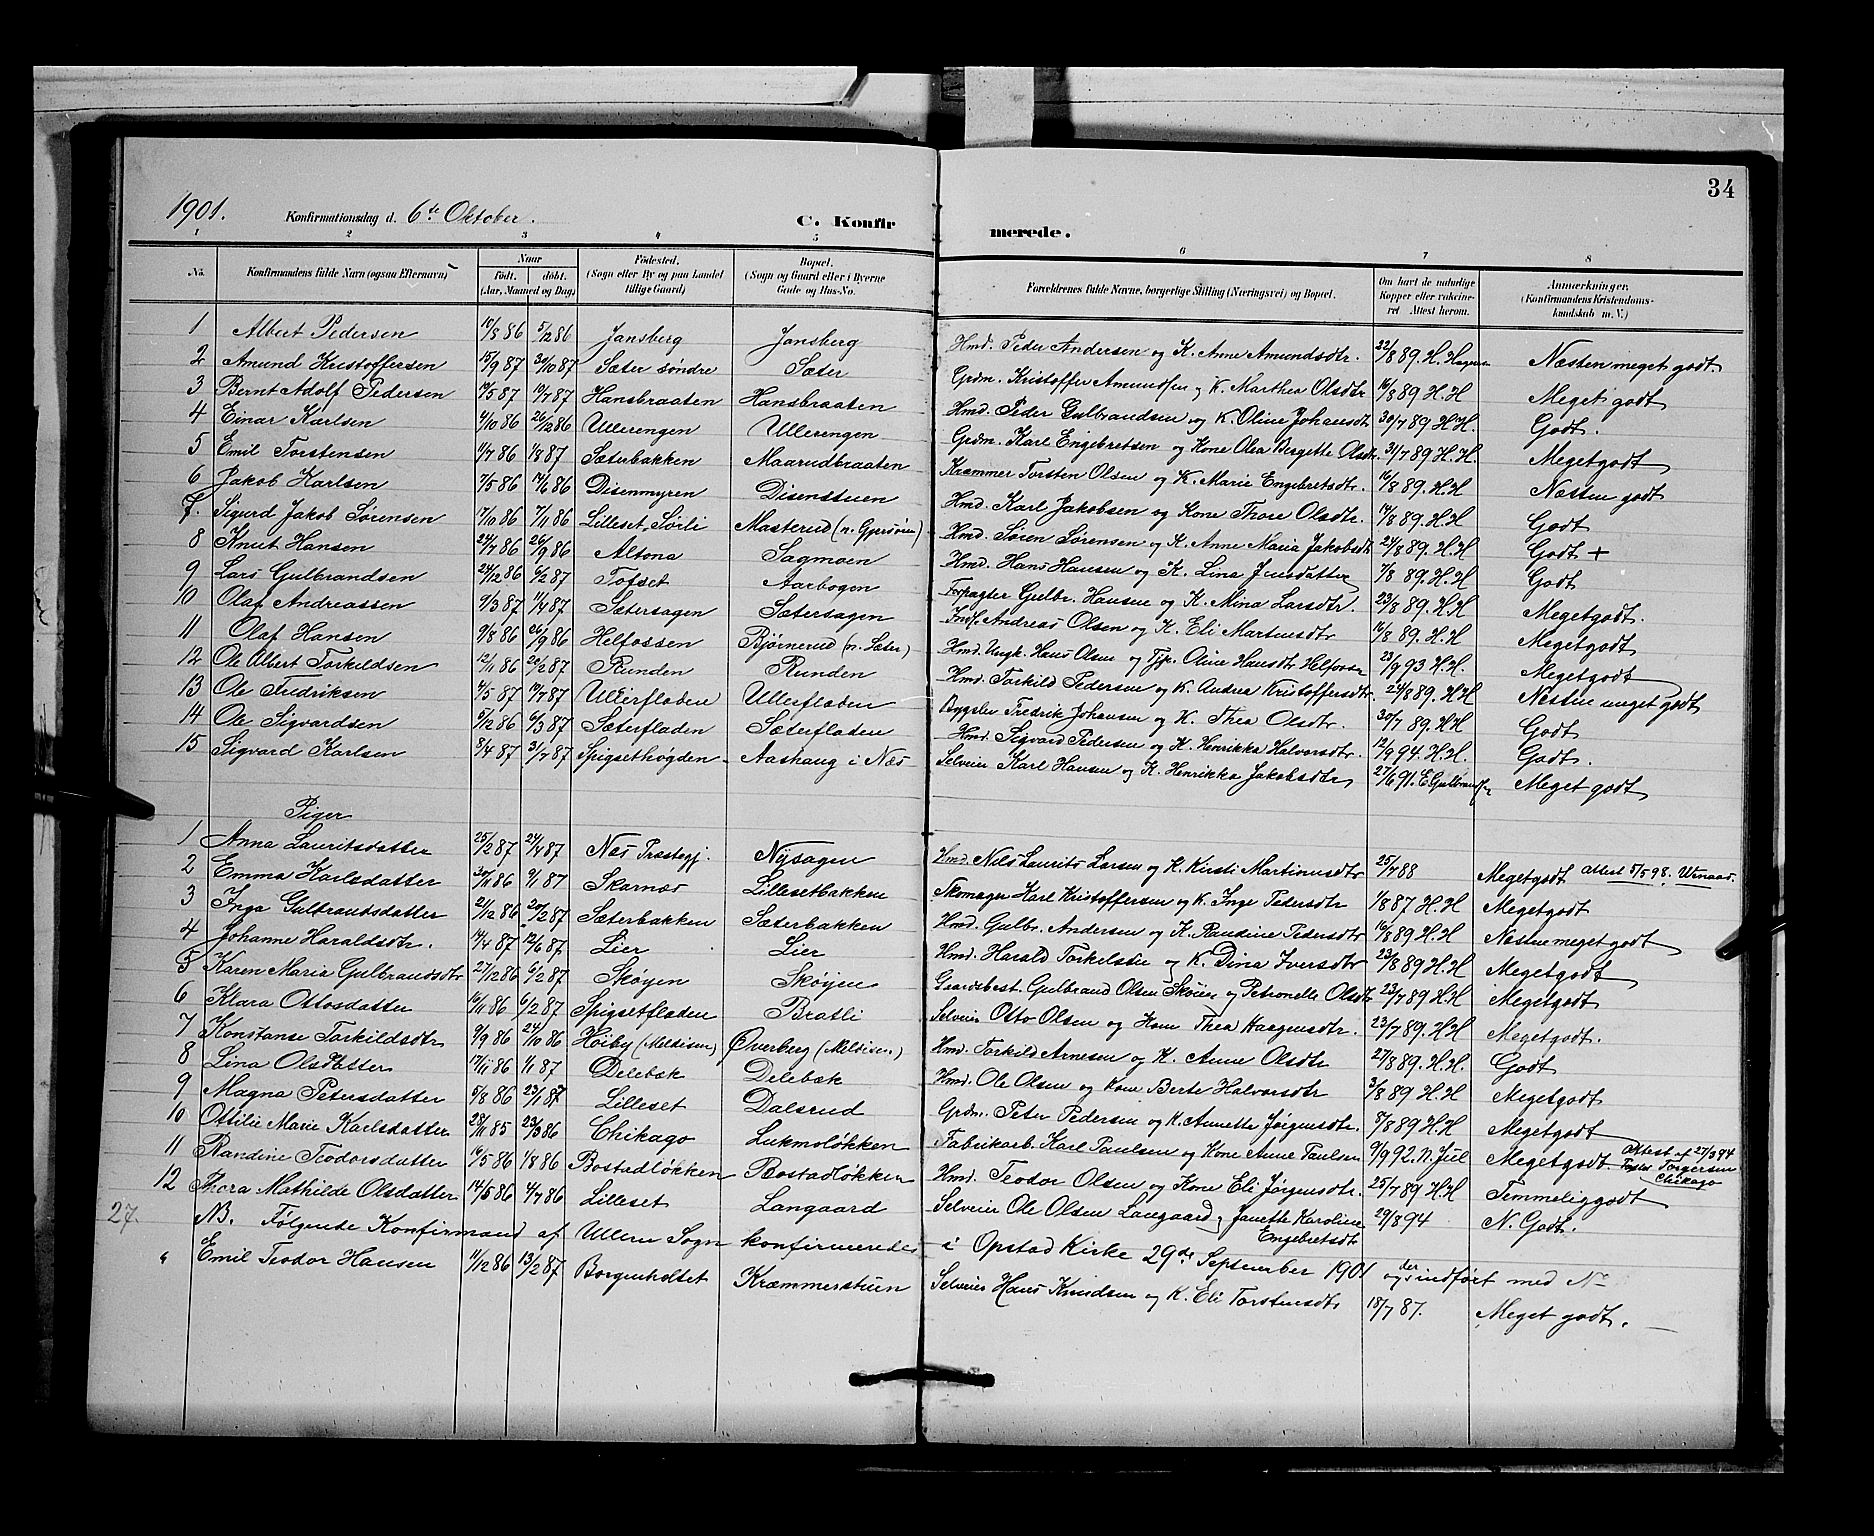 34
1901. Konfirmationsdag d. 6te Oktober. C. Konfirmerede.
1 2 3 4 5 6 7 8
No. Konfirmandens fulde Navn (ogsaa Efternavn) Naar Födt. döbt. (Aar, Maaned og Dag) Födested. (Sogn eller By og paa Landet tillige Gaard) Bopæl. (Sogn og Gaard eller i Byerne Gade og Hus-No. Forældrenes fulde Navne, borgerlige Stilling (Næringsvei) og Bopæl. Om havt de naturlige Kopper eller vakcineret. Attest herom. Anmærkninger. (Konfirmandens Kristendomskundskab m. V.)
1 Albert Pedersen 10/8 86 5/12 86 Jansberg Jansberg Hmd. Peder Andersen og K. Anne Amundsdtr. 22/8 89. H. Hagen Næsten meget godt.
2 Amund Kristoffersen 15/9 87 30/10 87 Sæter søndre Sæter Grdm. Kristoffer Amundsen og K. Marthea Olsdtr 16/8 89. H.H Meget godt
3 Bernt Adolf Pedersen 14/5 87 10/7 87 Hansbraaten Hansbraaten Hmd. Peder Gulbrandsen og K. Oline Johansdtr 30/7 89 H.H. Godt.
4 Einar Karlsen 4/10 86 26/12 86 Ullerengen Ullerengen Grdm. Karl Engebretsen og Kone Olea Bergette Olsdtr. 31/7 89. H.H. Meget godt
5 Emil Torstensen 11/7 86 1/8 87 Sæterbakken Maarudbraaten Kræmmer Torsten Olsen og K. Marie Engebretsdtr. 16/8 89. H.H Næsten godt
6 Jakob Karlsen 7/5 86 14/6 86 Disenmyren Disenstuen Hmd. Karl Jakobsen og Kone Thore Olsdtr. 17/8 89. H.H Godt
7. Sigurd Jakob Sørensen 17/10 86 7/11 86 Lilleset, Sørli Masterud (n. Gjersøien) Hmd. Søren Sørensen og K. Anne Maria Jakobsdtr 24/8 89. H.H Godt +
8 Knut Hansen 24/7 86 26/9 86 Altona Sagmoen Hmd. Hans Hansen og K. Lina Jensdatter 7/8 89. H.H Godt
9 Lars Gulbrandsen 24/12 86 6/2 87 Tofset Aarbogen Forpagter Gulbr. Hansen og K. Mina Larsdtr. 23/8 89. H.H Meget godt.
10 Olaf Andreassen 9/3 87 11/4 87 Sætersagen Sætersagen Inds. Andreas Olsen og K. Eli Martinsdtr 16/8 89. H.H Meget godt
11 Olaf Hansen 9/8 86 26/9 86 Helfossen Bjørnerud (n. Sæter) Hmd. Ungk. Hans Olsen og Tjp. Oline Hansdtr Helfossen 23/9 93 H.H. Meget godt
12 Ole Albert Torkildsen 12/11 86 20/2 87 Runden Runden Hmd. Torkild Pedersen og K. Andrea Kristoffersdtr. 24/8 89. H.H Næsten meget godt
13 Ole Fredriksen 4/5 87 10/7 87 Ullerfladen Ullerfladen Bygsler Fredrik Johansen og K. Thea Olsdtr. 30/7 89. H.H Godt
14 Ole Sigvardsen 5/12 86 6/3 87 Sæterfladen Sæterfladen Hmd. Sigvard Pedersen og K. Henrikka Halvorsdtr. 12/9 94. H.H. Godt.
15 Sigvard Karlsen 8/4 87 31/7 87 Spigsethøgden Aashaug i Næs Selveier Karl Hansen og K. Henrikka Jakobsdtr 27/6 91. E. Gulbrandsen Meget godt
Piger
1 Anna Lauritsdatter 25/2 87 24/4 87 Næs Præstegj. Nysagen Hmd. Nils Laurits Larsen og K. Kirsti Martionsdtr 25/7 88 Meget godt Attest 5/5 98.
2 Emma Karlsdatter 30/11 86 9/1 87 Skarnæs Lillesetbakken Skomager Karl Kristoffersen og K. Inge Pedersdtr 1/8 87 H.H Meget godt
3 Inga Gulbrandsdatter 21/12 86 20/2 87 Sæterbakken Sæterbakken Hmd. Gulbr. Andersen og K. Randine Pedersdtr 16/8 89 H.H Næsten meget godt
4 Johanne Haraldsdtr. 14/4 87 12/6 87 Lier Lier Hmd. Harald Torkelsen og K. Dina Iversdtr 23/8 89 H.H Meget godt
5 Karen Marie Gulbrandsdtr 27/12 86 6/2 87 Skøyen Skøyen Gaardbest. Gulbrand Olsen Skøien og Petronelle Olsdtr 23/7 89 H.H Meget godt
6 Klara Ottosdatter 10/11 86 6/2 87 Spigsetfladen Bratli Selveier Otto Olsen og Kone Thea Haagensdtr. 23/7 89. H.H Meget godt.
7 Konstanse Torkildsdtr 9/9 86 24/10 86 Høiby (Meldisen) Øverberg (Meldisen.) Hmd. Torkild Arnesen og K. Anne Olsdtr 27/8 89. H.H. Godt
8 Lina Olsdatter 17/11 86 1/1 87 Delebæk Delebæk Hmd. Ole Olsen og Kone Berte Halvorsdtr 3/8 89 H.H Meget godt
9 Magna Petersdatter 5/8 86 23/1 87 Lilleset Dalsrud Grdm. Peter Pedersen og K. Annette Jørgensdtr. 8/7 89 H.H Meget godt
10 Ottilie Marie Karlsdatter 28/11 85 23/3 86 Chikago Lukmoløkken Fabrikarb. Karl Paulsen og Kone Anne Paulsen 9/9 92. N. Juel Meget godt Attest af 27/3 94 Torgersen Chikago
11 Randine Teodorsdatter 16/5 86 1/8 86 Bostadløkken Bostadløkken Hmd. Teodor Olsen og Kone Eli Jørgensdtr. 25/7 89 H.H Temmelig godt
12 Thora Mathilde Olsdatter 14/5 86 4/7 86 Lilleset Langaard Selveier Ole Olsen Langaard og Janette Karoline Engebretsdtr 29/8 94 N. Godt.
27. NB. Følgende Konfirmand af Ullern Sogn konfirmeredes i Opstad Kirke 29de September 1901 og der indført med No
" Emil Teodor Hansen 11/12 86 13/2 87 Borgenholtet Kræmmerstuen Selveier Hans Knudsen og K. Eli Torstensdtr 18/7 87. Meget godt.